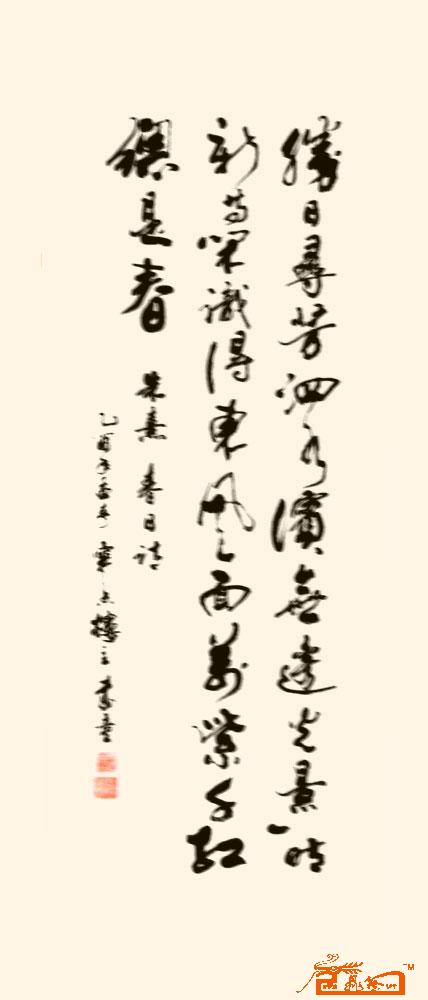 勝日尋芳泗水濱無邊光景一時
新等閑識得東風面萬紫千紅
總是春
朱熹 春日詩
乙酉年 樓主